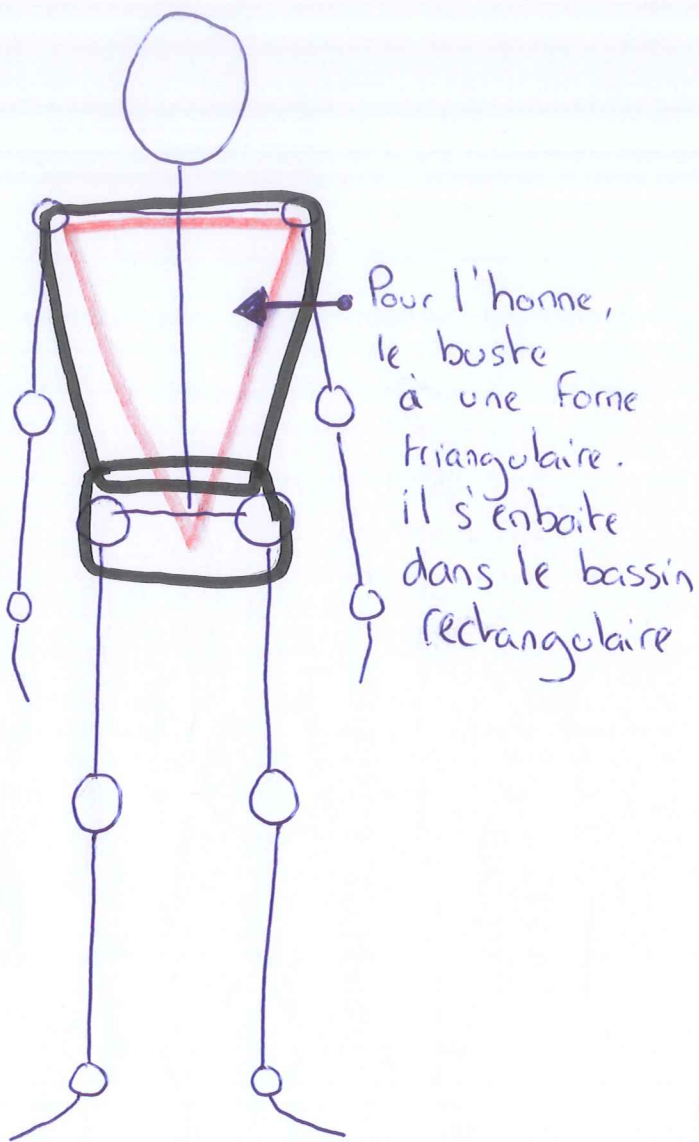 Pour l'homme,
le buste
à une forme
triangulaire.
il s'emboite
dans le bassin
rectangulaire